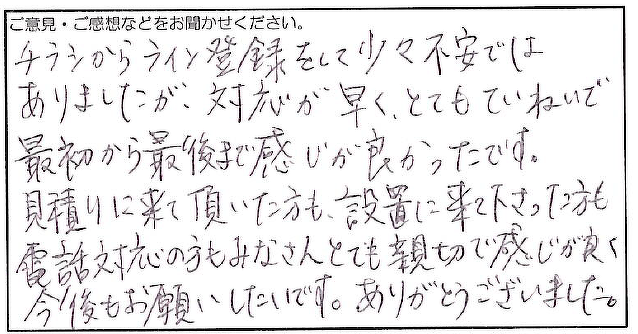 ご意見・ご感想などをお聞かせください。
チラシからライン登録をして少々不安では
ありましたが、対応が早く、とてもていねいで
最初から最後まで感じが良かったです。
見積りに来て頂いた方も、設置に来て下さった方も
電話対応の方もみなさんとても親切で感じが良く
今後もお願いしたいです。ありがとうございました。